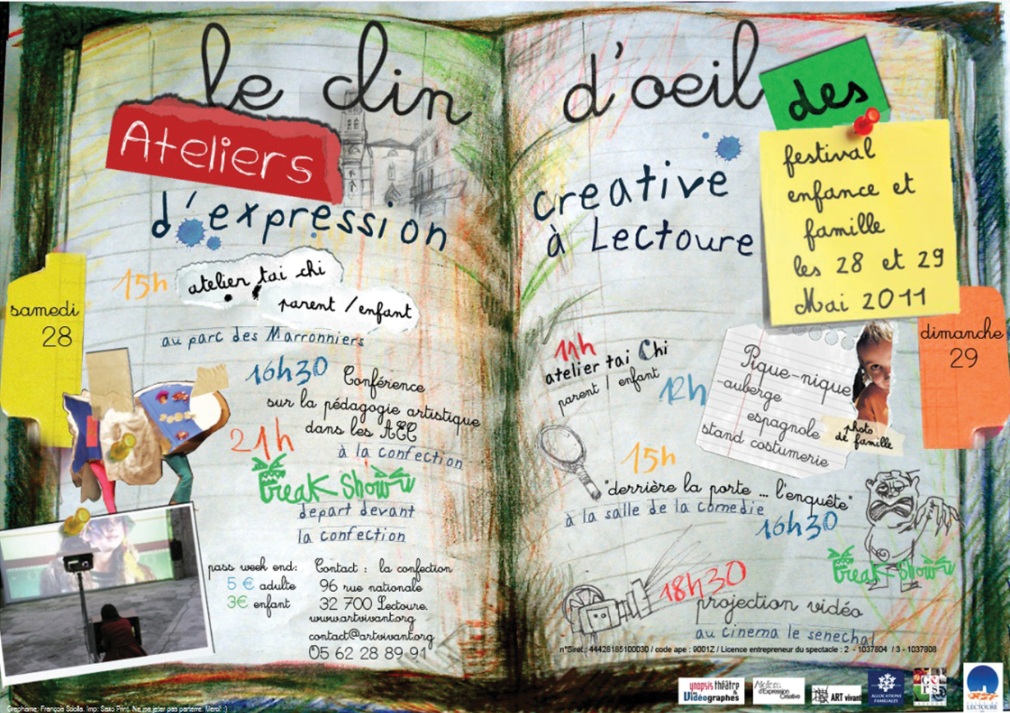 le clin d'oeil des
Ateliers
d'expression
creative
à Lectoure
festival
enfance et
famille
les 28 et 29
Mai 2011
samedi
28
15h atelier tai chi
parent / enfant
au parc des Marronniers
16h30 Conférence
sur la pédagogie artistique
dans les AEC
à la confection
21h
Break Show
depart devant
la confection
pass week end:
5 € adulte
3€ enfant
Contact : la confection
96 rue nationale
32 700 Lectoure
www.artvivant.org
contact@artvivant.org
05 62 28 89 91
dimanche
29
11h
atelier tai Chi
parent / enfant
12h
Pique-nique
-auberge
espagnole
stand costumerie
photo
de famille
15h
"derrière la porte ... l'enquête"
à la salle de la comedie
16h30
Break Show
18h30
projection vidéo
au cinema le senechal
n°Siret.: 44426185100030 / code ape : 9001Z / Licence entrepreneur du spectacle : 2 - 1037804 / 3 - 1037808
ynopsis théâtre
&
Vidéographes
Ateliers
d'Expression
Créative
ART vivant
ALLOCATIONS
FAMILIALES
LECTOURE
Ne me jeter pas parterre.